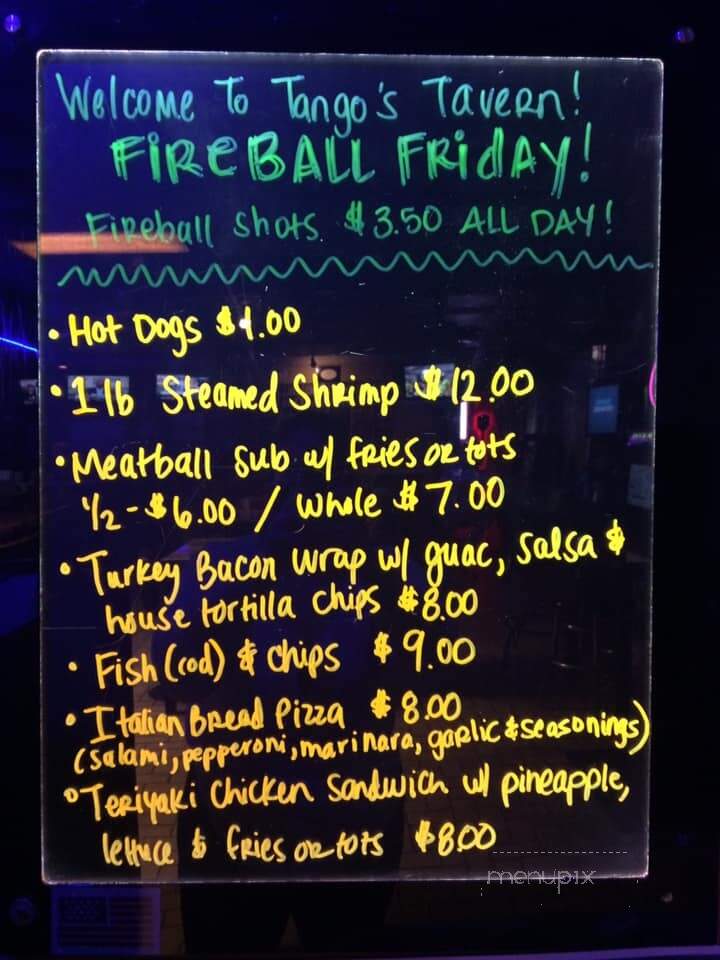 Welcome To Tango's Tavern!
FIREBALL FRIDAY!
Fireball shots $3.50 ALL DAY!
• Hot Dogs $1.00
• 1 lb Steamed Shrimp $12.00
• Meatball sub w/ fries or tots
1/2 - $6.00 / whole $7.00
• Turkey Bacon wrap w/ guac, salsa &
house tortilla chips $8.00
• Fish (cod) & chips $9.00
• Italian Bread Pizza $8.00
(salami, pepperoni, marinara, garlic & seasonings)
• Teriyaki Chicken Sandwich w/ pineapple,
lettuce & fries or tots $8.00
menupix